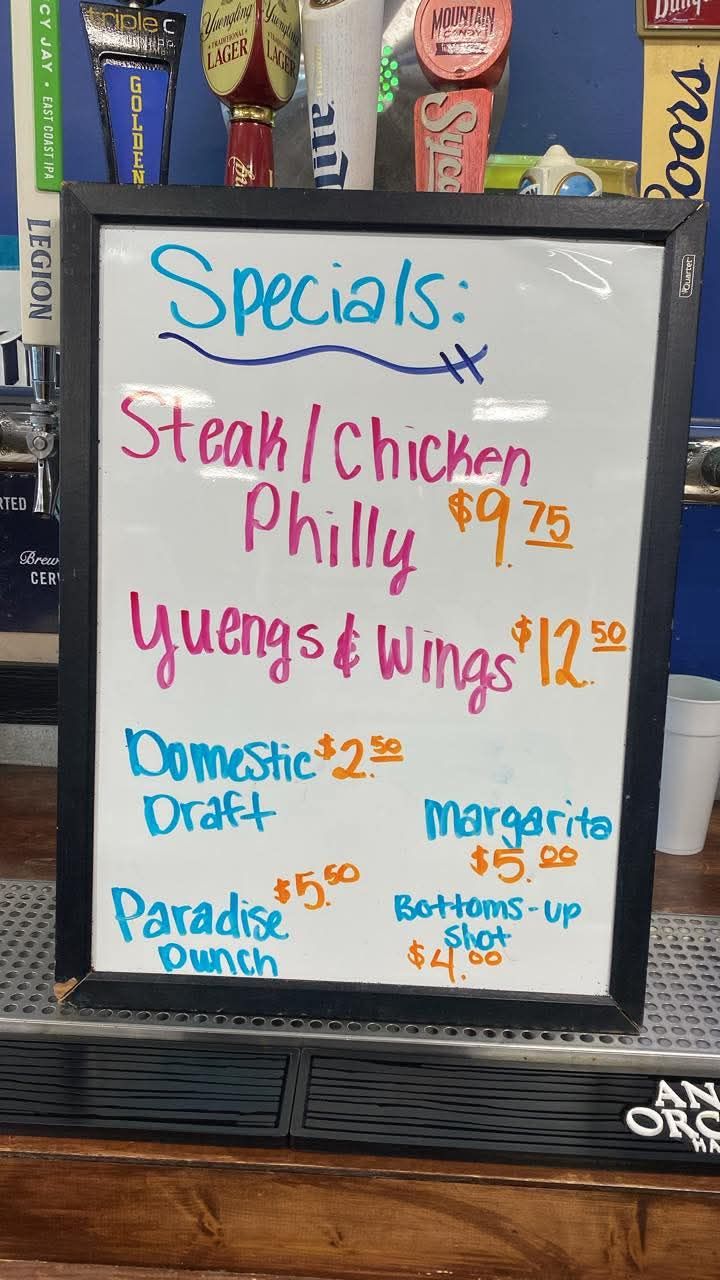 CY JAY • EAST COAST IPA
LEGION
triple c
GOLDEN
Yuengling
TRADITIONAL
LAGER
Yuengling
TRADITIONAL
LAGER
Lite
MOUNTAIN
CANDY
Syca
Coors
Quartet
Specials:
Steak/Chicken
Philly $9.75
Yuengs & Wings $12.50
Domestic $2.50
Draft
Margarita
$5.00
Paradise $5.50
Punch
Bottoms-up
Shot
$4.00
RTED
Brew
CER
AN
ORC
HA